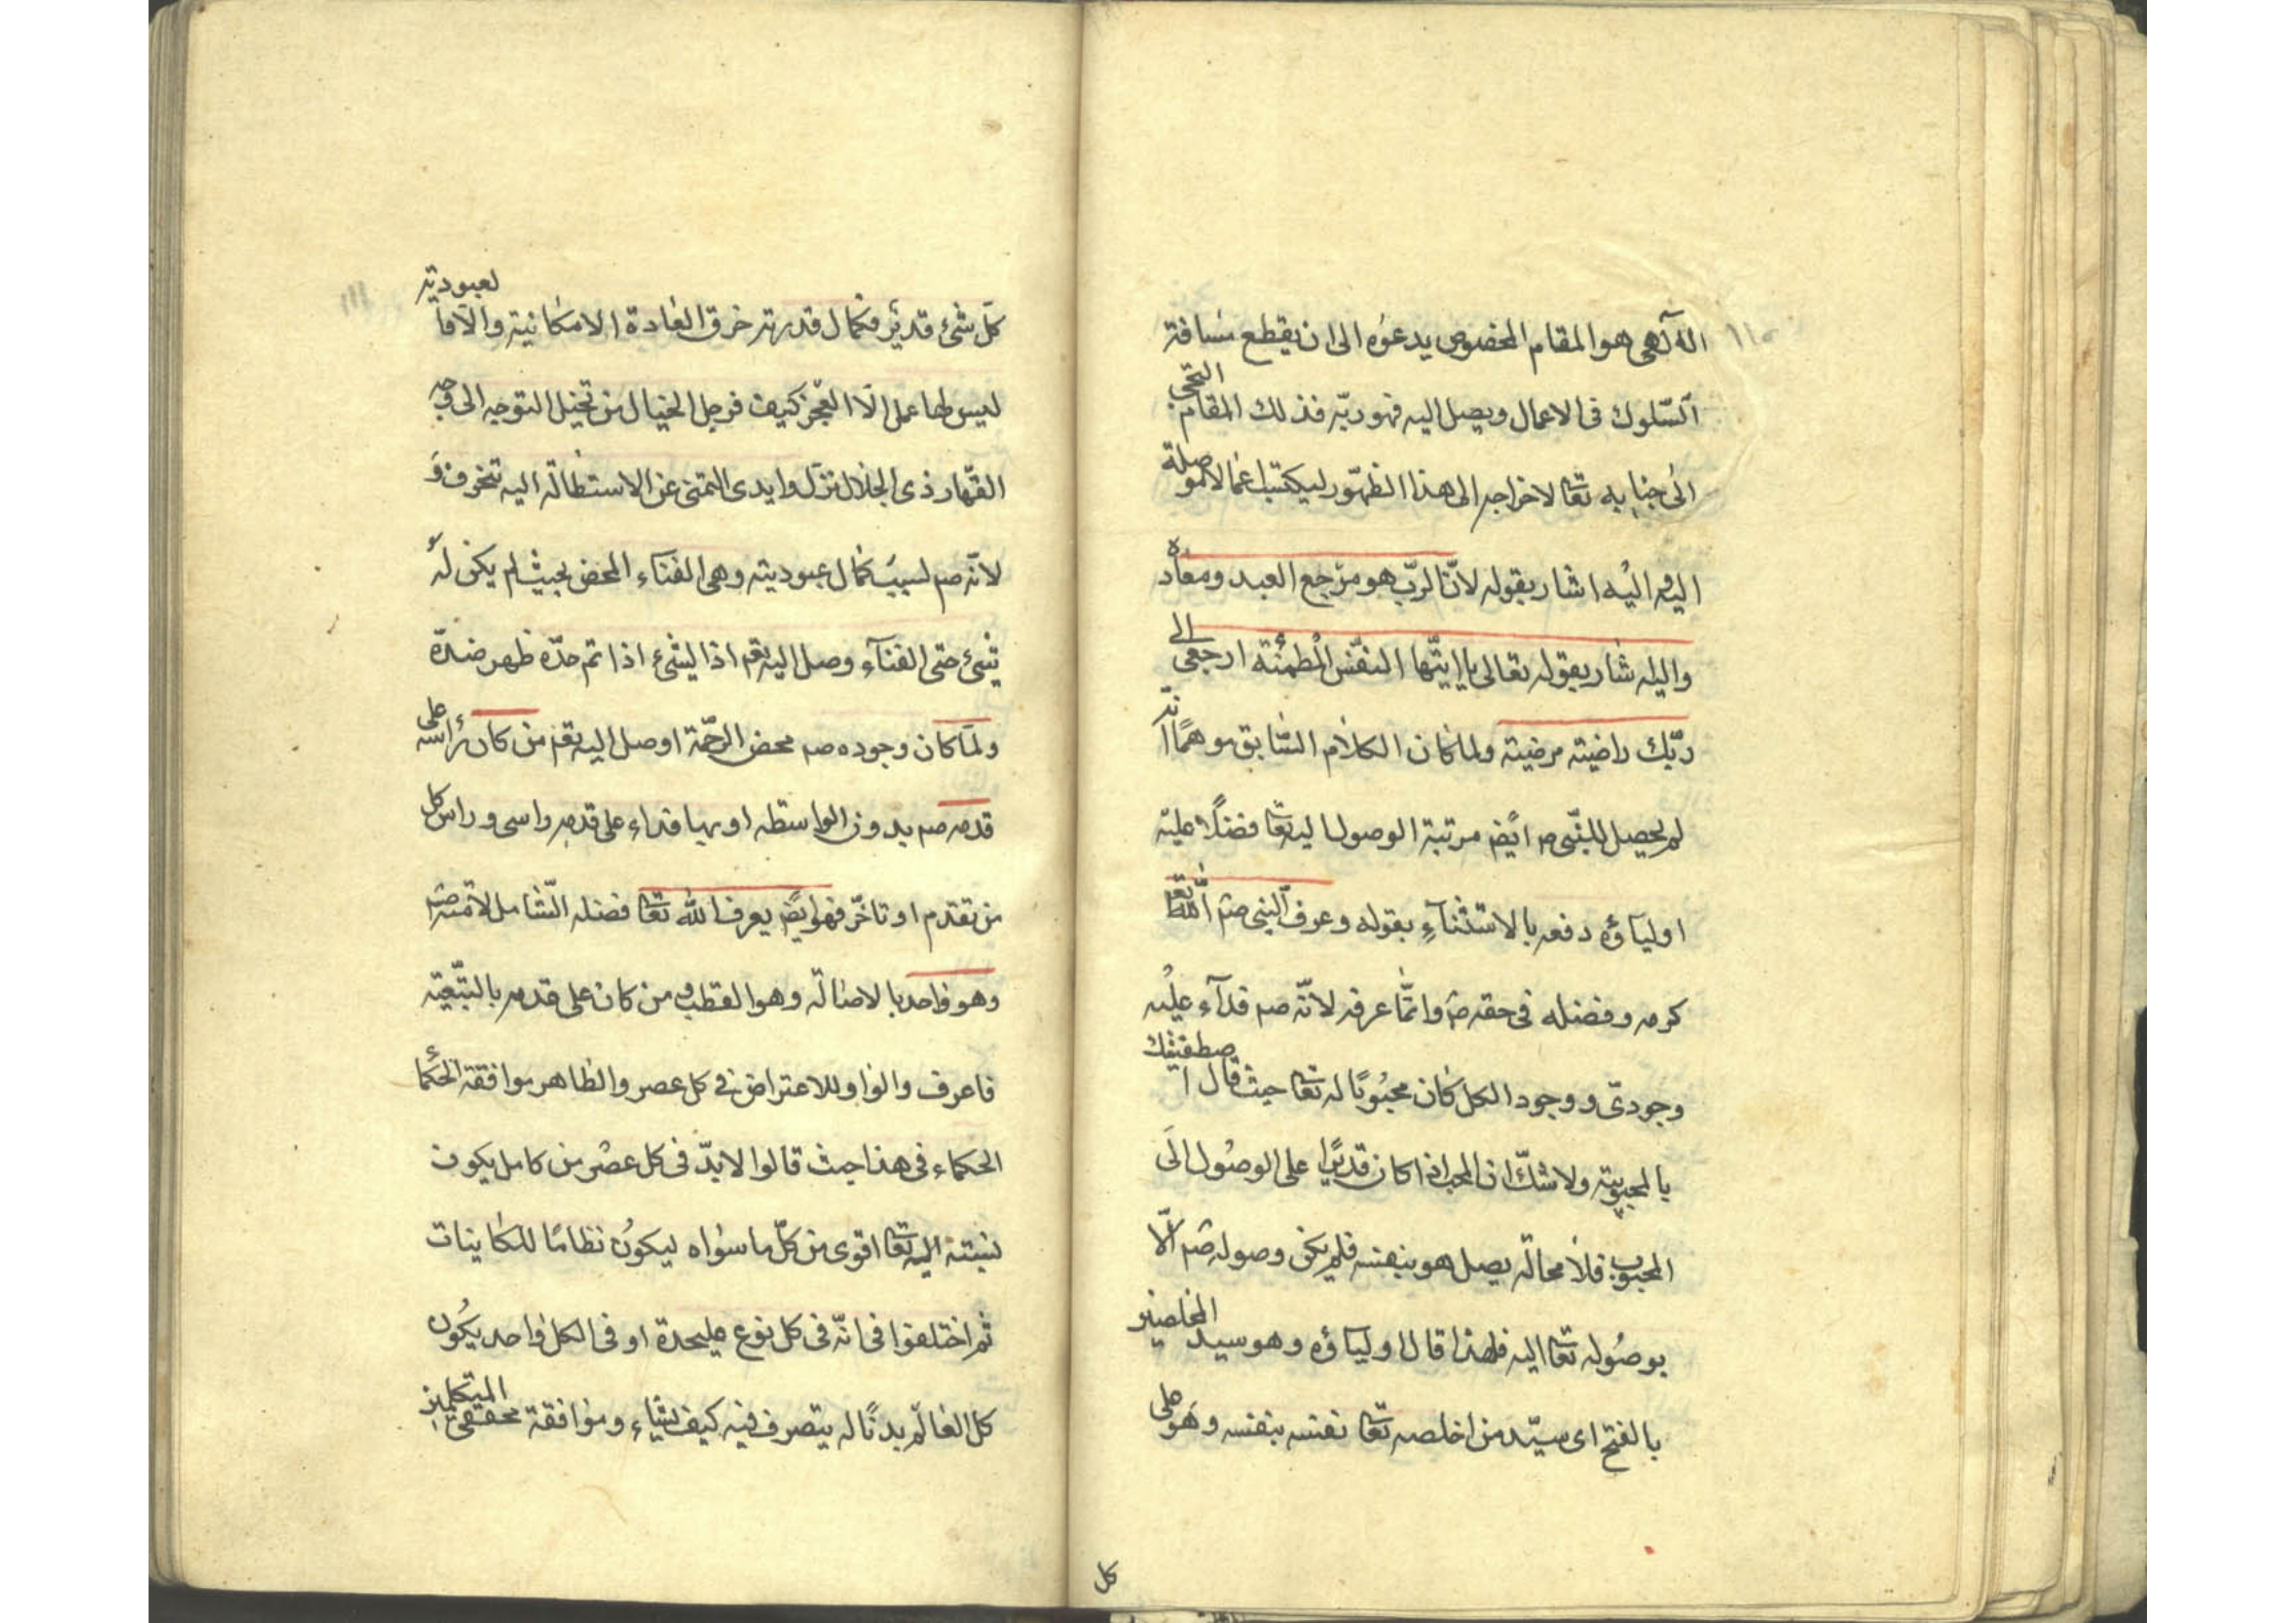 ١١٠
اله آلهى هو المقام المخصوص يدعوه الى ان يقطع مسافة
السّلوك فى الاعمال ويصل اليه فهو ربّه فذلك المقام التحتى
الى جنابه تعا لاخراجه الى هذا الظهور ليكتسب اعمالا موصلة
اليه واليه اشار بقوله لانّ الرّب هو مرجع العبد ومعاده
واليه شار بقوله تعالى يا ايتّها النفس المطمئنّة ارجعى الى
ربّك راضية مرضية ولما كان الكلام السّابق موهمًا انه
لم يحصل للنّبى ص ايضً مرتبة الوصول اليه تعا فضلًا عليه
اوليآؤه دفعه بالاستثنآءِ بقوله وعرف النبى صم اللّٰه تعا
كرمه وفضله فى حقه صم وانمّا عرفه لانّه صم فدآء عليه
وجودىّ ووجود الكل كان محبوبًا له تعا حيث قال اصطفيتك
بالمحبوبية ولا شكّ ان المحب اذا كان قديرًا على الوصول الى
المحبوب فلا محالة يصل هو بنفسه فلم يكن وصوله صم الّا
بوصُوله تعا اليه فلهذا قال اوليآؤه وهو سيد المخلصين
بالفتح اى سيّد من اخلصه تعا نفسه بنفسه وهو على
كل
١١١
كلّ شئ قدير فكمال قدرته خرق العادة الامكانية والآفا لعبوديته
ليس لها عمل الّا العجز كيف فرجل الخيال من تخيل التوجه الى وجه
القهّار ذى الجلال تزل وايدى التمنى عن الاستطالة اليه تنحرف و
لانّه صم لسبب كمال عبوديته وهى الفنآء المحض بحيث لم يكن له
شئ حتى الفنآء وصل اليه تعم اذ الشئ اذا تم حدّه ظهر ضدّه
ولمّا كان وجوده صم محض الرحمّة اوصل اليه تعم من كان رأسه على
قدمه صم بدون الواسطه او بها فداء على قدمه راسى وراس كل
من تقدم او تاخّر فهو ايضً يعرف اللّٰه تعا فضله الشّامل لامّته صم
وهو واحد بالاصالة وهو القطب ومن كان على قدمه بالتبّعية
فاعرف والواو للاعتراض فى كل عصر والظاهر موافقة الحكمآ
الحكماء فى هذا حيث قالوا لا بدّ فى كل عصر من كامل يكون
نسبته اليه تعا اقوى من كلّ ما سواه ليكون نظامًا للكاينات
ثمّ اختلفوا فى انّه فى كل نوع عليحدة او فى الكل واحد يكون
كل العالم بدنًا له يتصرف فيه كيف يشاء وموافقة محققى المتكلمين